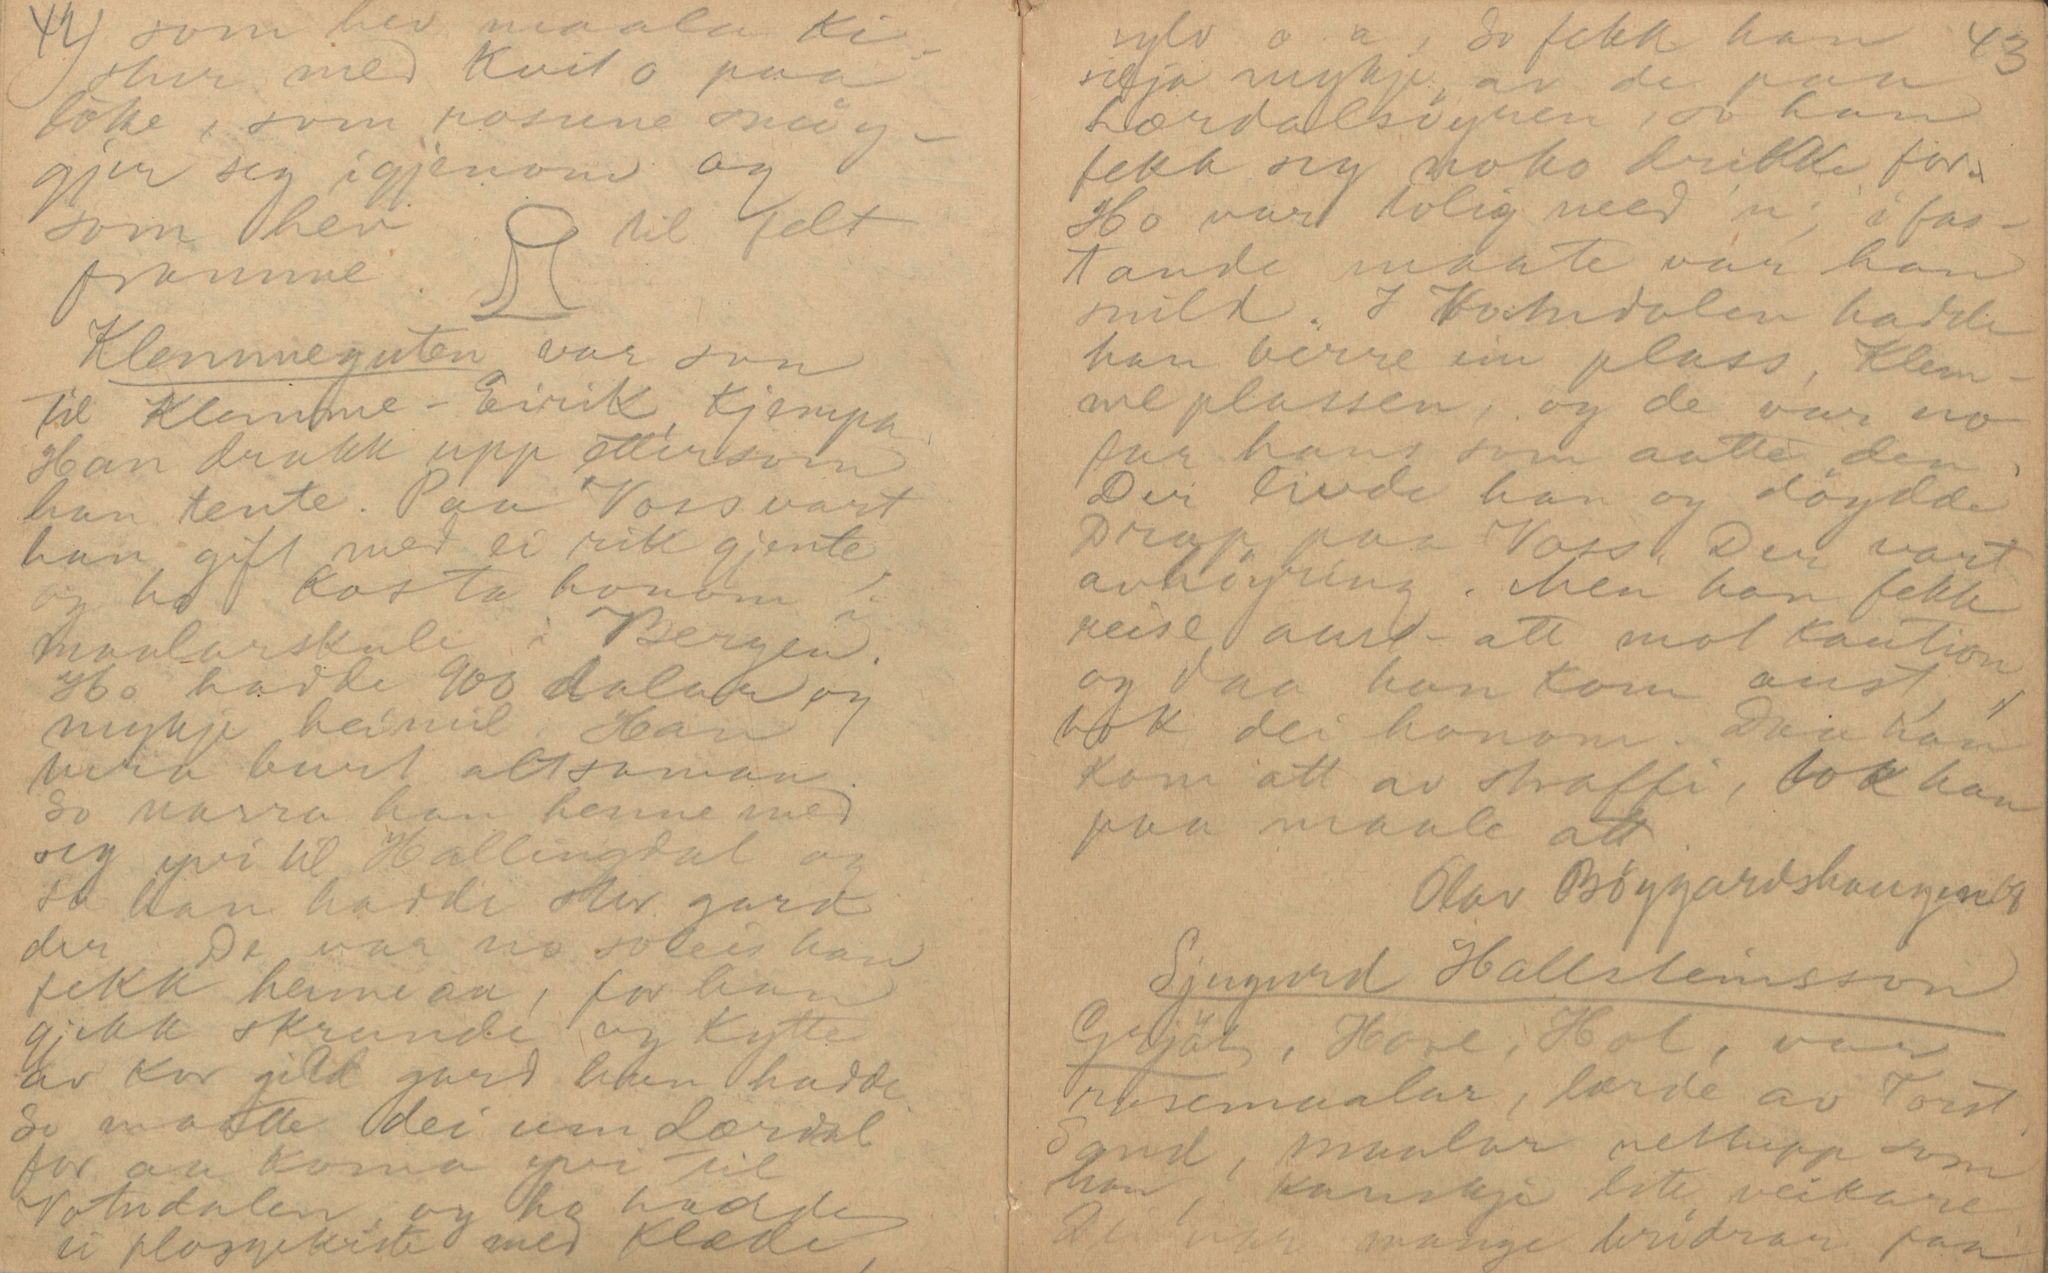 42) som hev maala ki-
stur med kvit o paa
loke, som rosune smøy-
gjer seg igjenom og
som hev til felt
framme.
Klemmeguten var son
til Klemme-Eirik, Kjempa.
Han drakk upp ettersom
han tente. Paa Voss vart
han gift med ei rik gjente
og ho kosta honom i
maalarskule i Bergen.
Ho hadde 900 dalar og
mykje heimil. Han
burt altsaman.
So narra han henne med
seg yvi til Hallingdal og
sa han hadde stor gard
der. De var no soleis han
fekk henne aa, for han
gjekk skrunde og kytte
av kor gild gard han hadde.
So maatte dei um Lærdal
for aa koma yvi til
Votndalen, og ho hadde
ei plaggekiste med klæde,
43
sylv o. a, So fekk han
selja mykje av de paa
Lærdalsøyren, so han
fekk seg noko drikke for.
Ho var tolig med 'n; i fas-
tande maate var han
snild. I Votndalen hadde
han berre ein plass, Klem-
meplassen, og de var no
far hans som aatte den.
Der livde han og døydde
Drap paa Voss. Der vart
avhøyring. Men han fekk
reise aust-att mot kaution
og daa han kom aust,
tok dei honom. Daa han
kom att av straffi, tok han
paa maale att.
Olav Bøygardshaugen
Sjugurd Hallsteinsson
Grjøt, Hove, Hol, var
rosemaalar, lærde av Torst.
Sand, maalar nettupp som
han, kanskje lite veikare
Dei var mange brødrar paa